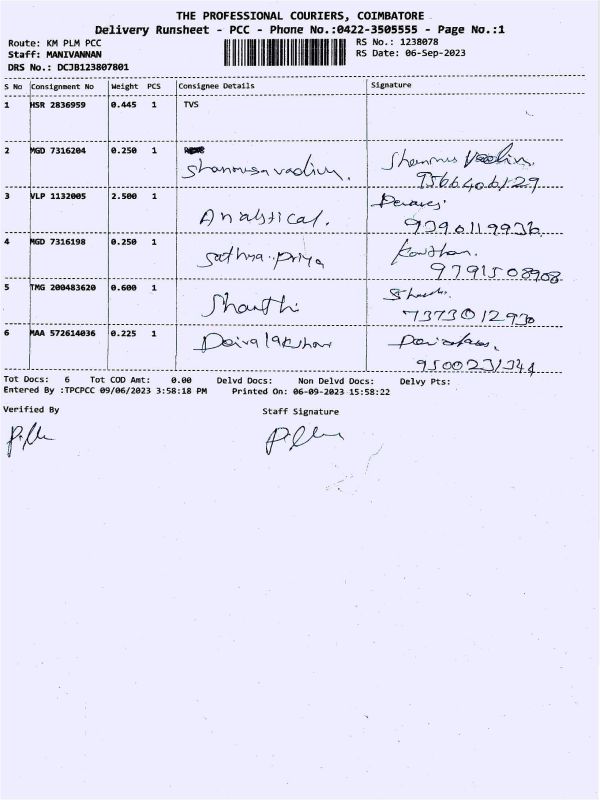 THE PROFESSIONAL COURIERS, COIMBATORE
Delivery Runsheet - PCC - Phone No.:0422-3505555 - Page No.:1
Route: KM PLM PCC
Staff: MANIVANNAN
DRS No.: DCJB123807801
RS No.: 1238078
RS Date: 06-Sep-2023
S No Consignment No Weight PCS Consignee Details Signature
1 HSR 2836959 0.445 1 TVS
2 MGD 7316204 0.250 1
9566406129
3 VLP 1132005 2.500 1 Analytical.
9390119936
4 MGD 7316198 0.250 1 Sathya priya
9791508908
5 TMG 200483620 0.600 1 Shanthi
7373012930
6 MAA 572614036 0.225 1
9500231344
Tot Docs: 6 Tot COD Amt: 0.00 Delvd Docs: Non Delvd Docs: Delvy Pts:
Entered By :TPCPCC 09/06/2023 3:58:18 PM Printed On: 06-09-2023 15:58:22
Verified By Staff Signature